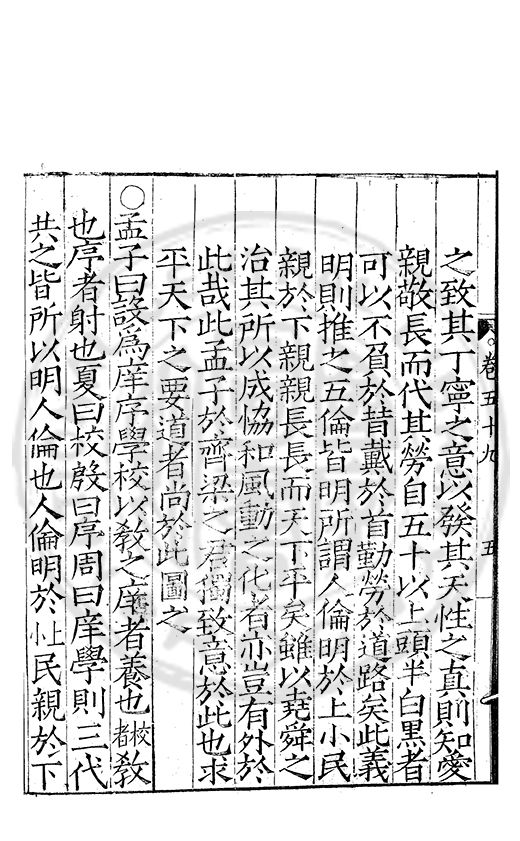 卷五十九 五
之致其丁寧之意以發其天性之真則知愛
親敬長而代其勞自五十以上頭半白黑者
可以不負於昔戴於首勤勞於道路矣此義
明則推之五倫皆明所謂人倫明於上小民
親於下親親長長而天下平矣雖以堯舜之
治其所以成協和風動之化者亦豈有外於
此哉此孟子於齊梁之君獨致意於此也求
平天下之要道者尚於此圖之
○孟子曰設爲庠序學校以教之庠者養也校者教
也序者射也夏曰校殷曰序周曰庠學則三代
共之皆所以明人倫也人倫明於上小民親於下